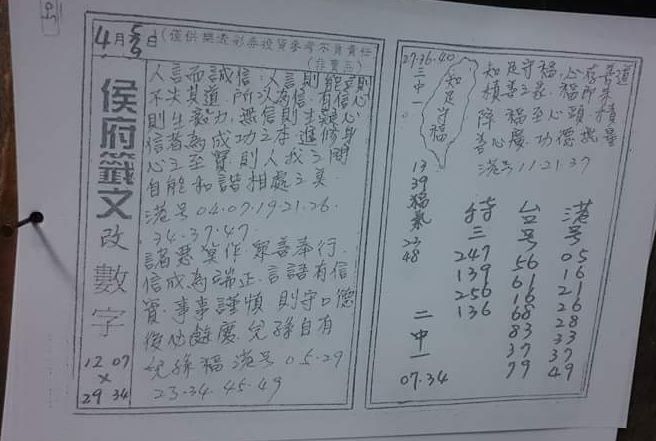 4月5/9日(僅供樂透彩券投資參考不負責任
(非賣品)
侯府籤文
改數字
12 07
×
29 34
人言而誠信.人言則能言則
不失其道.所以為信.有信心
則生毅力.無信則生疑心
信者為成功之本進修身
心之至寶則人我之間
自能和諧相處之美.
港号04.07.19.21.26.
34.37.47.
諸惡莫作.眾善奉行.
信成為端正.言語有信
實.事事謹慎.則守口德
後代餘慶.兒孫自有
兒孫福 港号05.29
23.34.45.49
27.36.40
三中一
知足守福
知足守福.心存善道
積善之家.福即來
陣 福至心頭.積
善心慶.功德無量
港号11.21.37
13
39
福氣
23
48
二中一
07.34
特三
247
139
256
136
台号
56
61
16
68
83
37
79
港号
05
16
21
26
28
33
37
49